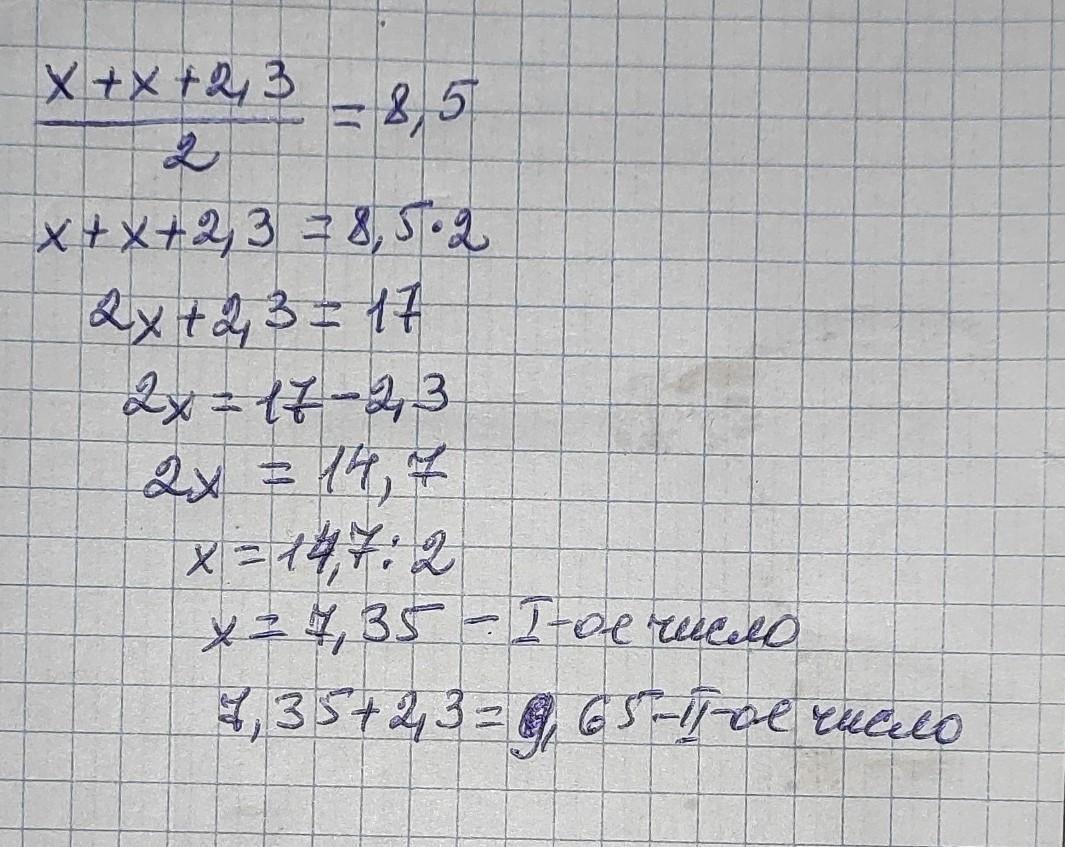 x+x+2,3
2
= 8,5
x+x+2,3 = 8,5·2
2x+2,3 = 17
2x = 17-2,3
2x = 14,7
x = 14,7:2
x = 7,35 - I-ое число
7,35+2,3 = 9,65-II-ое число